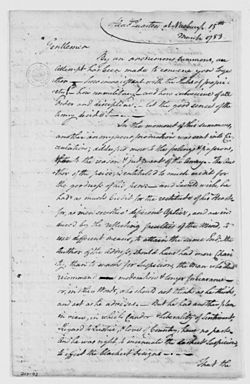 Head Quarters Newburgh 15th
March 1783.
Gentlemen
By an anonymous summons, an
attempt has been made to convene you toge-
ther – how inconsistent with the rules of propri-
ety, how unmilitary, and how subversive of all
order and discipline – let the good sense of the
Army decide.
In the moment of this summons,
another anonymous production was sent into Cir-
culation, addressed more to the feelings & passions,
than to the reason & judgment of the Army. The Au-
thor of the piece, is entitled to much credit for
the goodness of his Pen: and I could wish he
had as much credit for the rectitude of his Heart
for, as men see thro' different Optics, and are in-
duced by the reflecting faculties of the Mind, to
use different means to attain the same End: the
Author of the Address, should have had more Chari-
ty, than to mark for Suspicion, the Man who should
recommend Moderation & longer forbearance –
or, in other Words, who should not think as he thinks,
and act as he advises. – But he had another plan
in view, in which Candor & liberality of Sentiment,
Regard to Justice, & love of Country, have no part;
and he was right, to insinuate the darkest suspicion,
to effect the blackest designs. –
That the